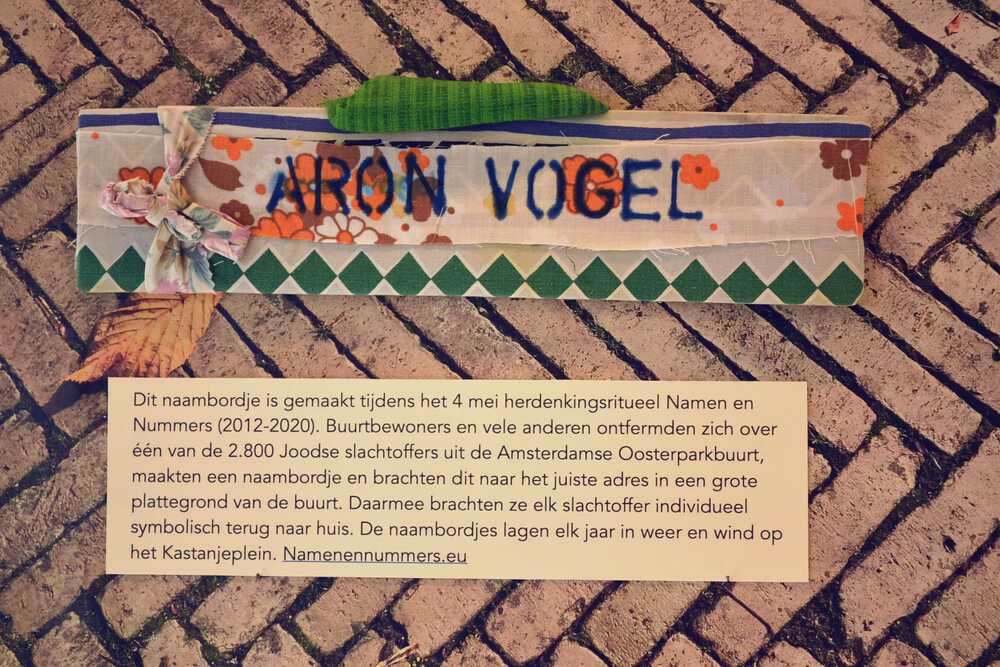 ARON VOGEL
Dit naambordje is gemaakt tijdens het 4 mei herdenkingsritueel Namen en
Nummers (2012-2020). Buurtbewoners en vele anderen ontfermden zich over
één van de 2.800 Joodse slachtoffers uit de Amsterdamse Oosterparkbuurt,
maakten een naambordje en brachten dit naar het juiste adres in een grote
plattegrond van de buurt. Daarmee brachten ze elk slachtoffer individueel
symbolisch terug naar huis. De naambordjes lagen elk jaar in weer en wind op
het Kastanjeplein. Namenennummers.eu